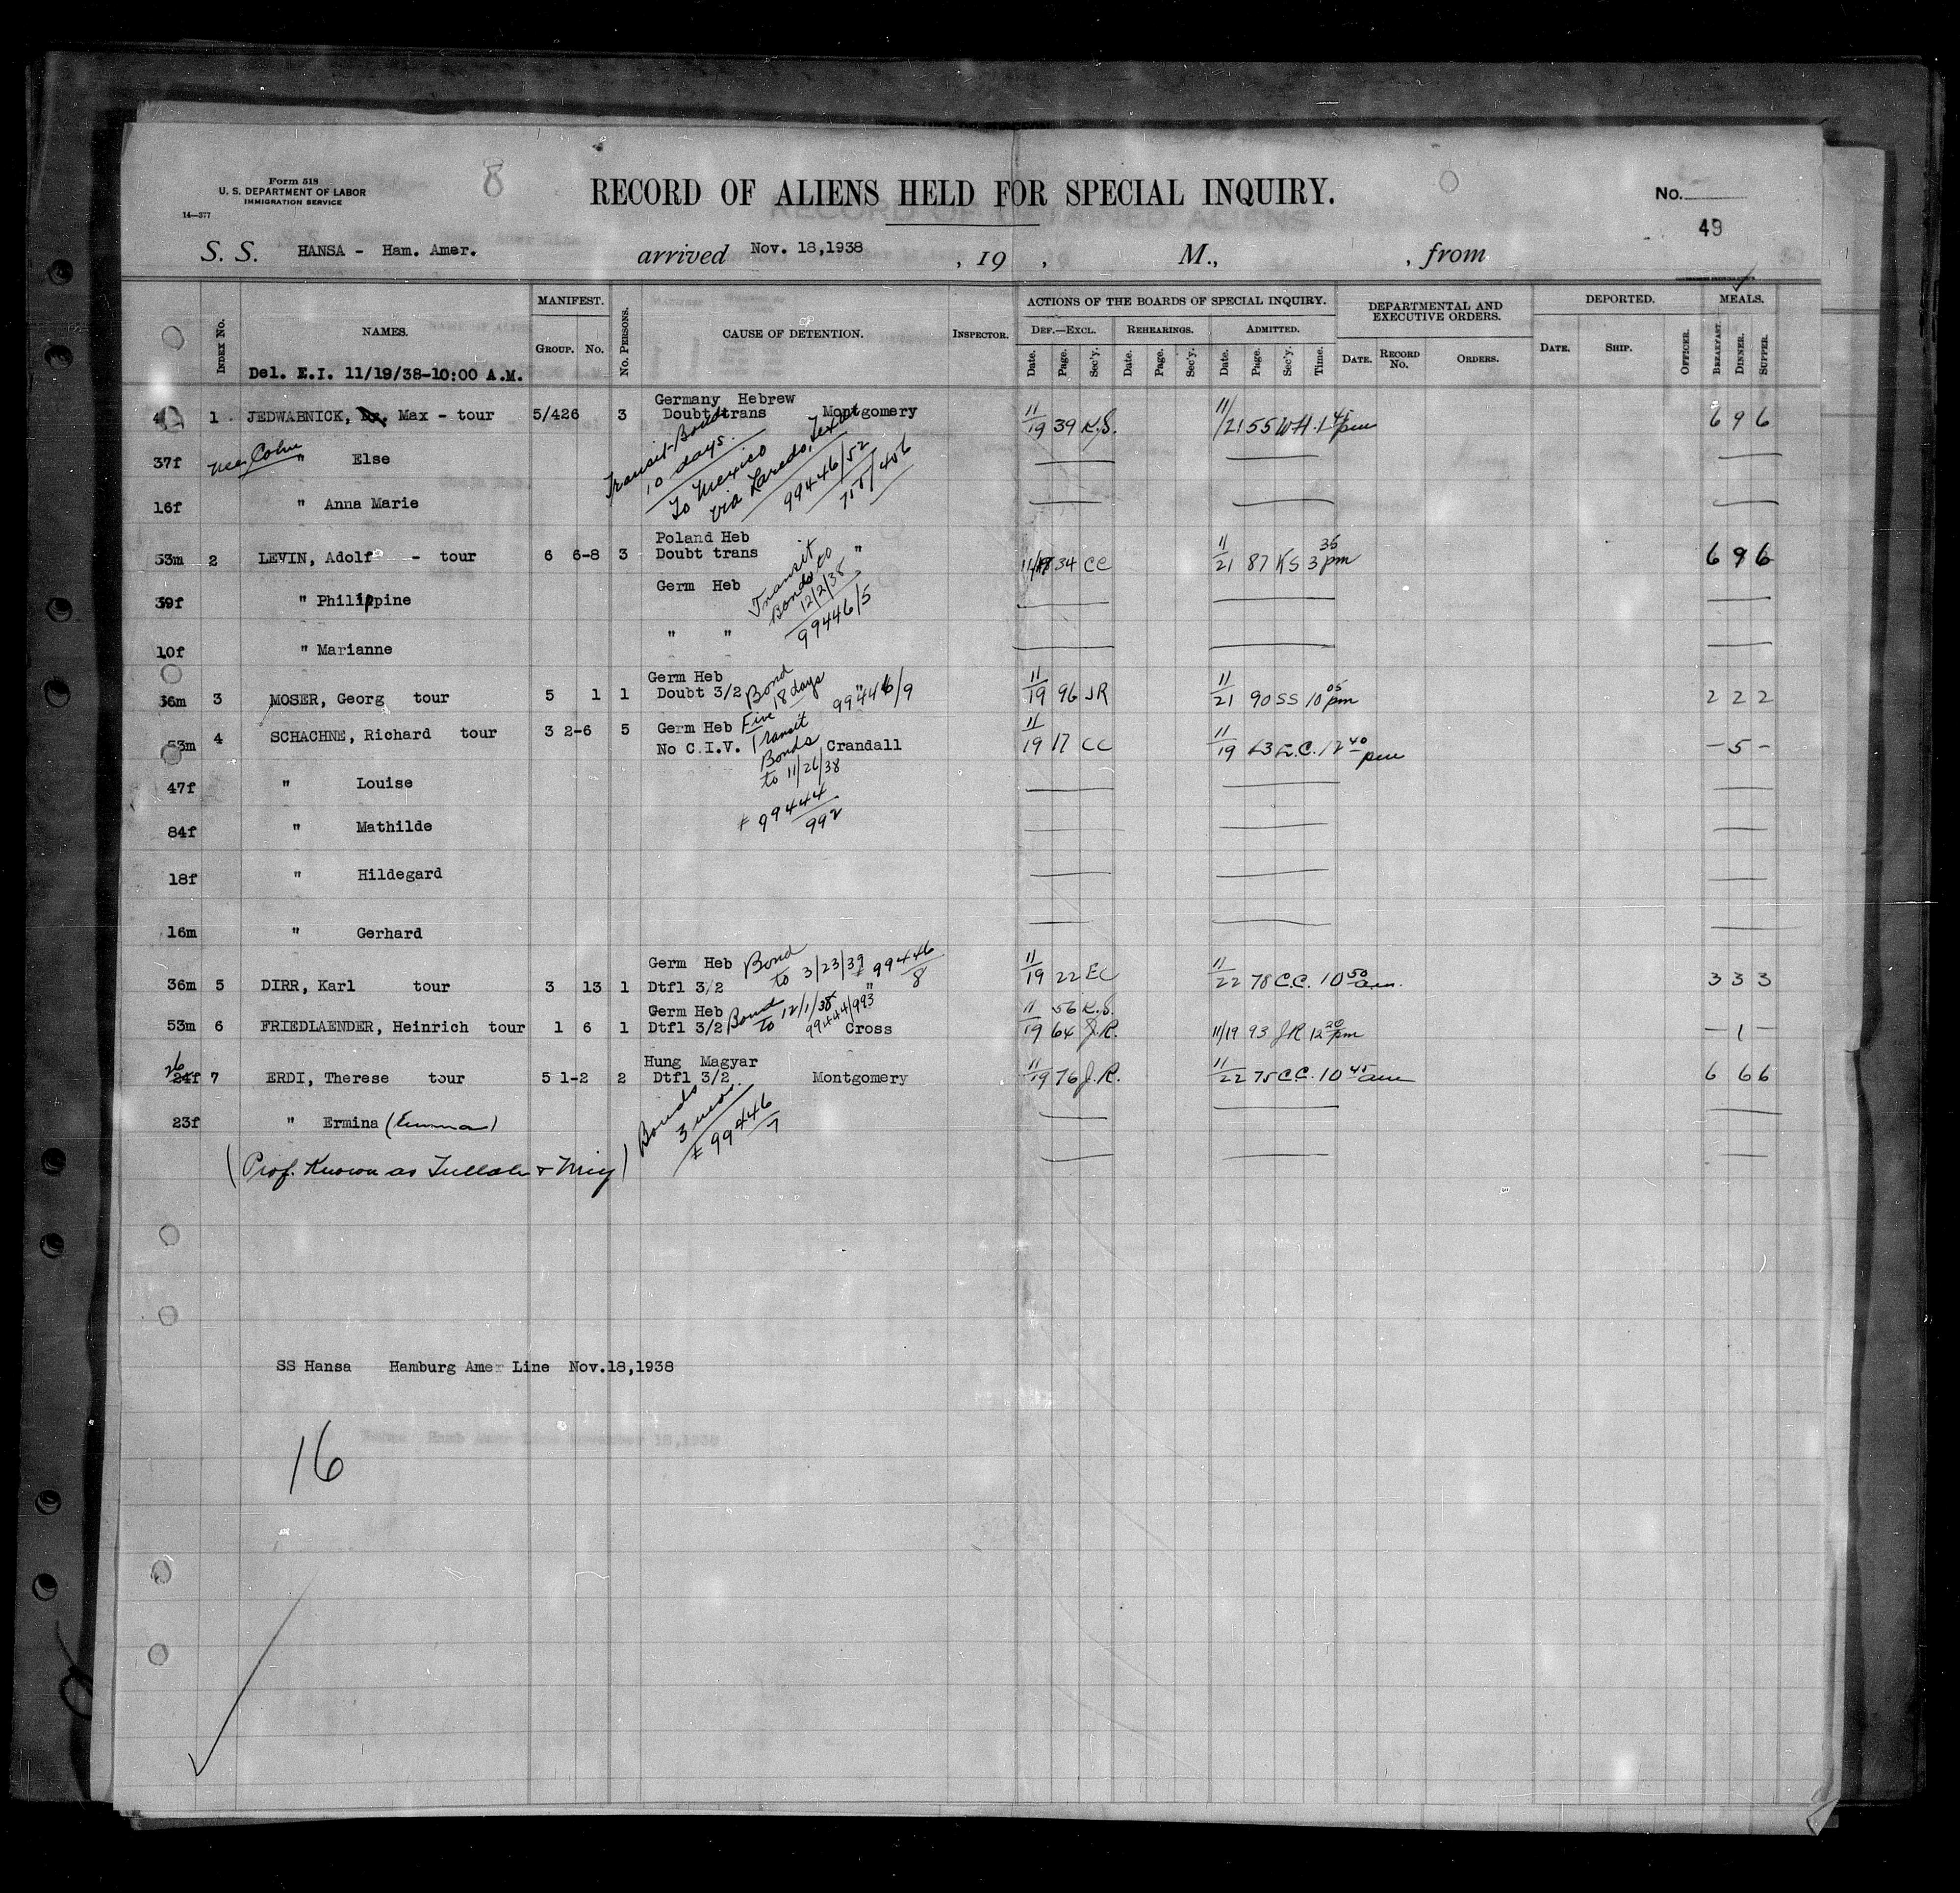 Form 518
U. S. DEPARTMENT OF LABOR
IMMIGRATION SERVICE
14—377
8
RECORD OF ALIENS HELD FOR SPECIAL INQUIRY.
No.
49
S. S. HANSA - Ham. Amer. arrived Nov. 18,1938 , 19 , M., , from
INDEX No. NAMES. MANIFEST. GROUP. No. No. PERSONS. CAUSE OF DETENTION. INSPECTOR. ACTIONS OF THE BOARDS OF SPECIAL INQUIRY. DEF.—EXCL. Date. Page. Sec'y. REHEARINGS. Date. Page. Sec'y. ADMITTED. Date. Page. Sec'y. Time. DEPARTMENTAL AND EXECUTIVE ORDERS. DATE. RECORD No. ORDERS. DEPORTED. DATE. SHIP. OFFICER. MEALS. BREAKFAST. DINNER. SUPPER.
Del. E.I. 11/19/38-10:00 A.M.
Germany Hebrew
1 JEDWABNICK, Max - tour 5/426 3 Doubt trans Montgomery 11/19 39 K.S. 11/21 55 WH. 6 9 6
Transit Bonds
10 days.
To Mexico
via Laredo, Texas
99446/52
755/406
37f nee Cohn " Else
16f " Anna Marie
Poland Heb
53m 2 LEVIN, Adolf - tour 6 6-8 3 Doubt trans " 34 CC 11/21 87 KS 3 36 pm 6 9 6
Transit
Bonds to
12/2/38
99446/5
39f " Philippine Germ Heb
10f " Marianne " "
Germ Heb
36m 3 MOSER, Georg tour 5 1 1 Doubt 3/2 Bond 18 days " 99446/9 11/19 96 JR 11/21 90 SS 10 05 pm 2 2 2
53m 4 SCHACHNE, Richard tour 3 2-6 5 Germ Heb
No C.I.V. Crandall 11/19 17 CC 11/19 63 E.C. 12 40 pm - 5 -
Five
Transit
Bonds
to 11/26/38
# 99444/992
47f " Louise
84f " Mathilde
18f " Hildegard
16m " Gerhard
Germ Heb Bond to 3/23/39 # 99446/8
36m 5 DIRR, Karl tour 3 13 1 Dtfl 3/2 " 11/19 22 EC 11/22 78 C.C. 10 50 am. 3 3 3
Germ Heb Bond to 12/1/38 99444/993 11 56 K.S.
53m 6 FRIEDLAENDER, Heinrich tour 1 6 1 Dtfl 3/2 Cross 19 64 J.R. 11/19 93 JR 12 20 pm - 1 -
Hung Magyar
26 24f 7 ERDI, Therese tour 5 1-2 2 Dtfl 3/2 Montgomery 11/19 76 J.R. 11/22 75 C.C. 10 45 am 6 6 6
Bonds
3 mos
# 99446/7
23f " Ermina (Emma)
(Prof. Known as & )
SS Hansa Hamburg Amer Line Nov.18,1938
16